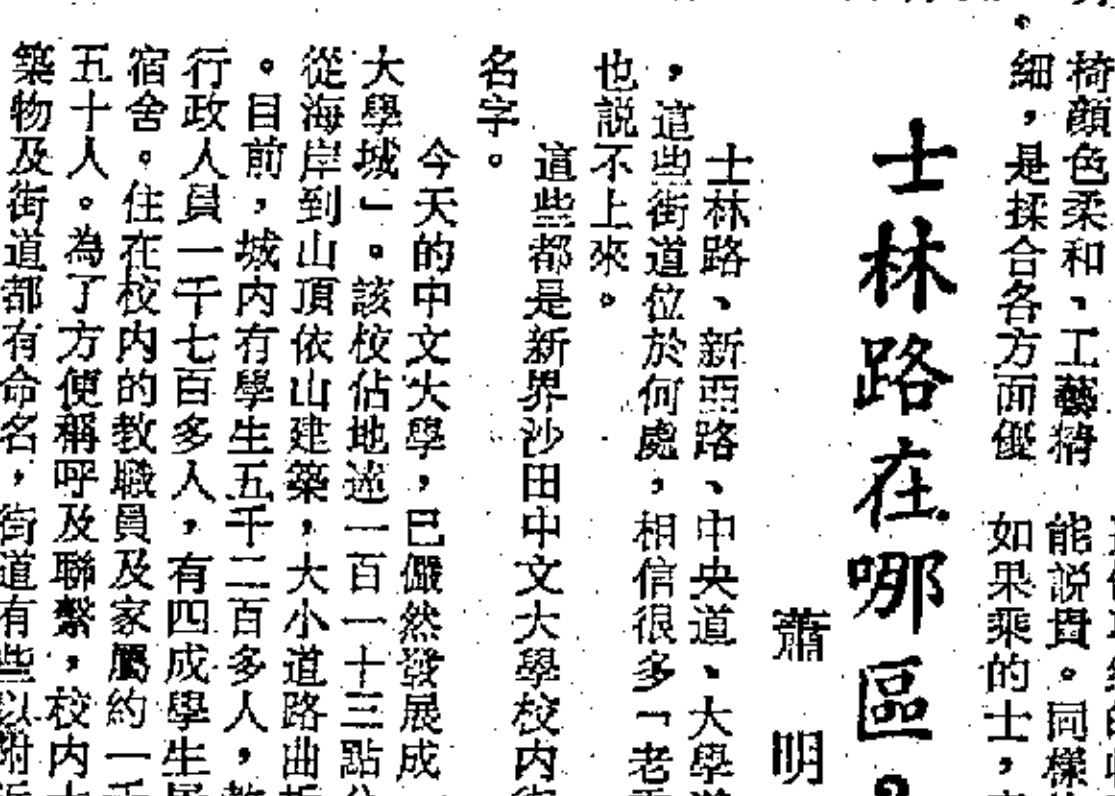 椅顏色柔和、工藝精
細，是揉合各方面優
能説貴。同樣
如果乘的士，
士林路在哪區？
蕭 明
士林路、新亞路、中央道、大學
，這些街道位於何處，相信很多「老
也説不上來。
這些都是新界沙田中文大學校内街
名字。
今天的中文大學，已儼然發展成
大學城」。該校佔地達一百一十三點
從海岸到山頂依山建築，大小道路曲折
。目前，城内有學生五千二百多人，教
行政人員一千七百多人，有四成學生居
宿舍。住在校内的教職員及家屬約一千
五十人。為了方便稱呼及聯繫，校内大
築物及街道都有命名，街道有些以附近